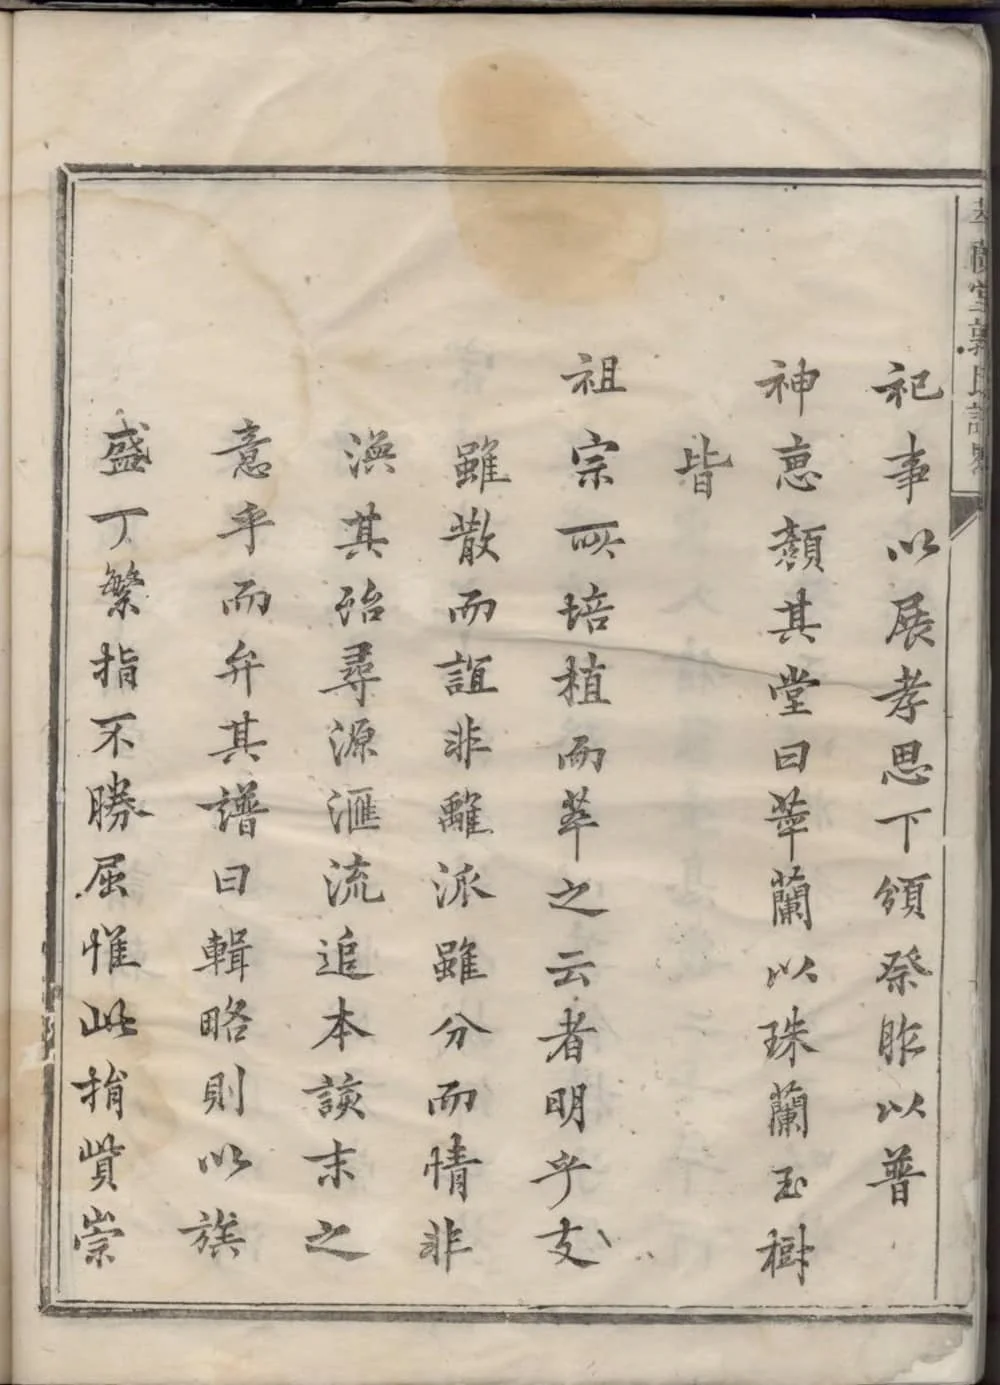 堂郭氏譜畧
祀事以展孝思下頒祭胙以普
神恵顏其堂曰萃蘭以珠蘭玉樹
皆
祖宗所培植而萃之云者明乎支
雖散而誼非離派雖分而情非
渙其殆尋源滙流追本該末之
意乎而弁其譜曰輯略則以族
盛丁繁指不勝屈惟此捐貲崇